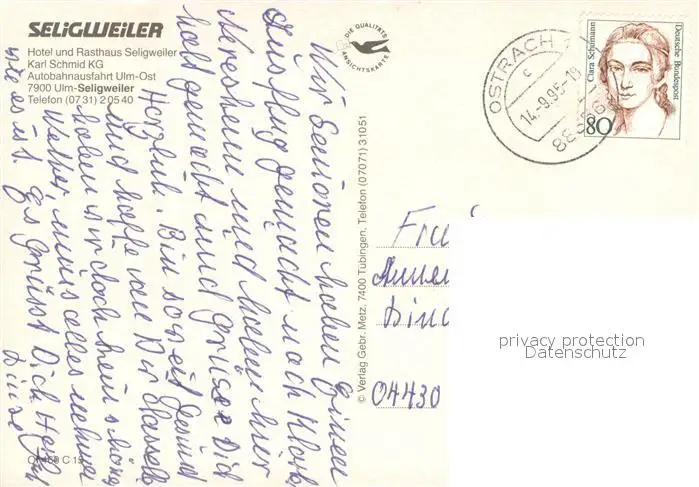 SELIGWEILER
Hotel und Rasthaus Seligweiler
Karl Schmid KG
Autobahnausfahrt Ulm-Ost
7900 Ulm-Seligweiler
Telefon (0731) 20540
DIE QUALITÄTS
ANSICHTSKARTE
OSTRACH
c
14.-9.95-18
88356
Clara Schumann
Deutsche Bundespost
80
Wir Senioren haben einen
Ausflug gemacht nach Kloster
Neresheim und haben hier
halt gemacht und grüsse Dich
Herzlich. Bin soweit gesund
und hoffe von Dir dasselbe
haben wir doch kein schönes
Wetter, muss alles nehmen
wie es ist. Es grüsst Dich
© Verlag Gebr. Metz, 7400 Tübingen, Telefon (07071) 31051
04430
privacy protection
Datenschutz